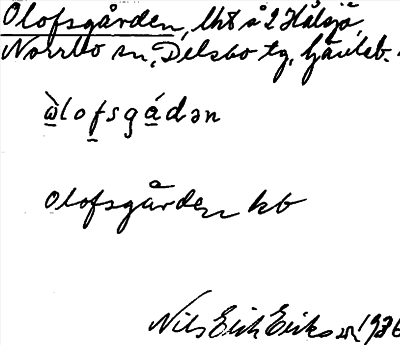 Olofsgården, lht å 2 Hålsjö,
Norrbo sn, Delsbo tg, Gävleb.
ὼlofsgádən
Olofsgården kb
Nils Erik Eriksson 1936